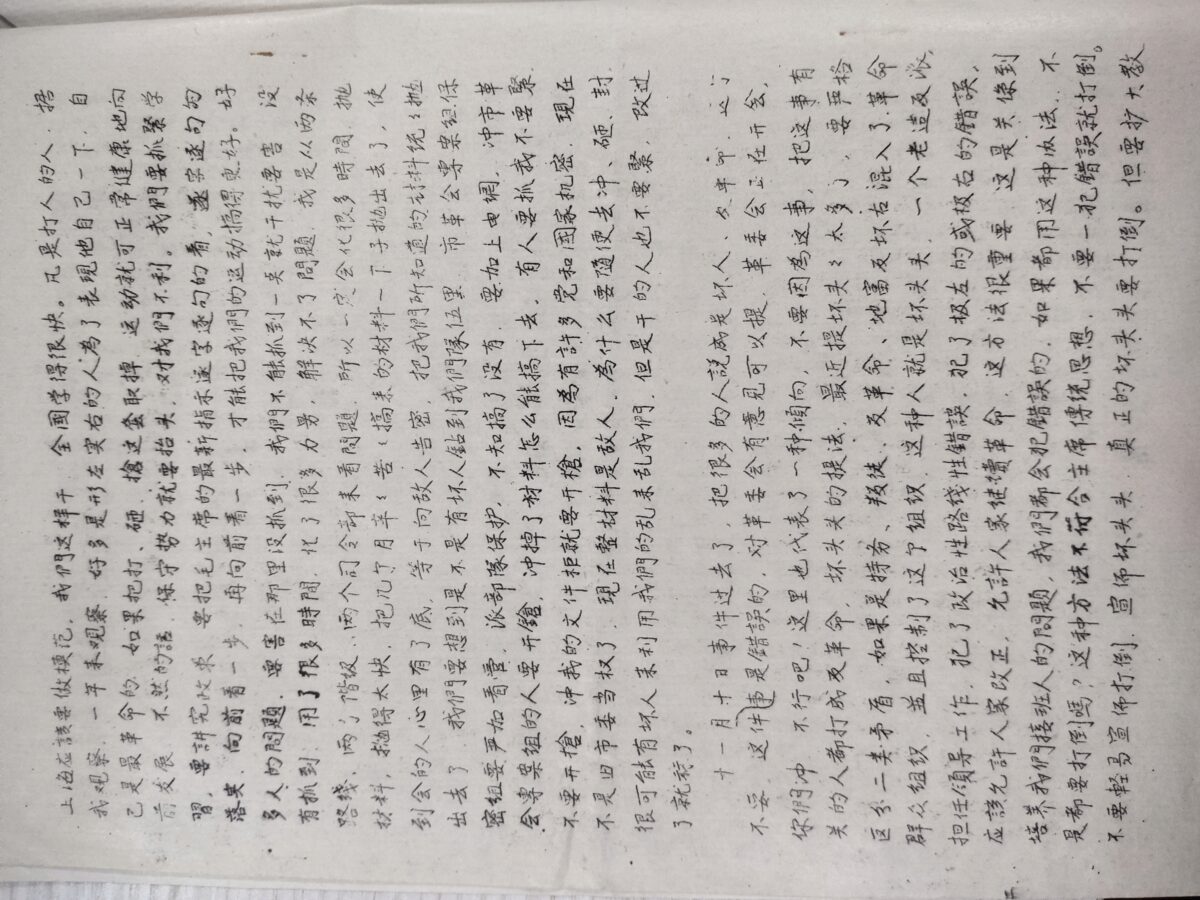 上海应該要做模范，我們这样干，全國学得很快。凡是打人的人，据
我观察，一年来观察，好多是形左实右的人为了表現他自己一下，自
己是最革命的，如果把打、砸、搶这套取掉，运动就可正常健康地向
前发展，不然的話，保守势力就要抬头，对我們不利。我們要抓緊学
習，要讲究政策，要把毛主席的最新指示逐字逐句的看，逐字逐句的
落实，向前看一步，再向前看一步，才能把我們的运动搞得更好。好
多人的問題，要害在那里没抓到，我們不能抓到一点就干扰要害，没
有抓到，用了很多時間，化了很多力量，解决不了問題，我是从两条
路綫、两个階级、两个司令部来看問題，所以一定会化很多時間，抛
材料，抛得太快，把几个月辛〻苦〻搞来的材料一下子抛出去了，使
到会的人心里有了底，等于向敌人告密，把我們所知道的材料统〻抛
出去了，我們要想到是不是有坏人鉆到我們隊伍里，市革会專案组保
密組要严加看管，派部隊保护，不知搞了没有，要加上电網，冲市革
会專案組的人要开鎗，冲掉了材料怎么能搞下去，有人要抓我不要緊，
不要开槍，冲我的文件柜就要开槍，因為有許多党和國家机密，現在
不是旧市委当权了，現在整材料是敌人，為什么要隨便去冲、砸、封，
很可能有坏人来利用我們的乱来乱我們，但是干的人也不要緊，改过
了就行了。
十一月十日事件过去了，把很多的人説成是坏人、反革命，这个
不妥，这件事是錯誤的，对革委会有意見可以提，革委会正在开会，
你們冲，不行吧！这里也代表了一种傾向，不要因為这事，把这事有
关的人都打成反革命，坏头头的提法，最近提坏头〻太多了，要严格
区分二类矛盾，如果是特务、叛徒、反革命、地富反坏右混入了革命
群众組织，並且控制了这个組织，这种人就是坏头头，一个老造反派，
担任領导工作，犯了政治性路綫性錯誤，犯了极左的或极右的錯誤，
应該允許人家改正，允許人家继續革命，这方法很重要，这是关係到
培养我們接班人的問題，我們都会犯錯誤的，如果都用这种办法，不
是都要打倒嗎？这种方法不符合主席傳統思想，不要一犯錯誤就打倒。
不要輕易宣佈打倒，宣佈坏头头，真正的坏头头要打倒。但要扩大教